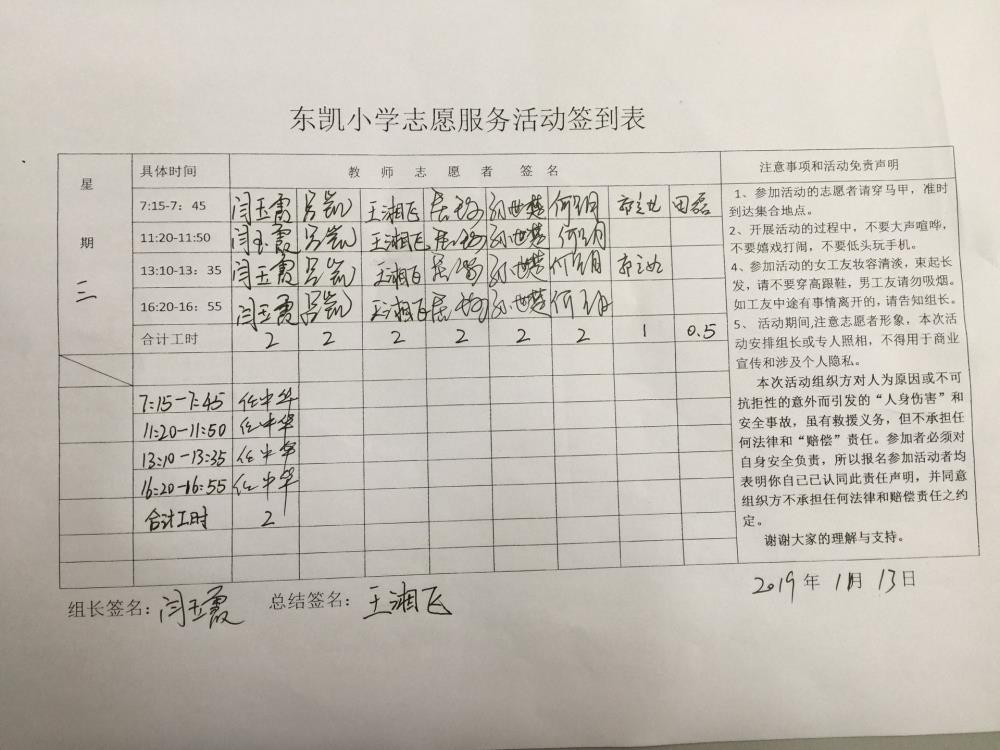 东凯小学志愿服务活动签到表
星期三
具体时间 教师志愿者签名
7:15-7：45 闫玉霞 吕凯 王湘飞 孙世楚 何明 田磊
11:20-11:50 闫玉霞 吕凯 王湘飞 孙世楚 何明
13:10-13：35 闫玉霞 吕凯 王湘飞 孙世楚 何明
16:20-16：55 闫玉霞 吕凯 王湘飞 孙世楚 何明
合计工时 2 2 2 2 2 2 1 0.5
7:15-7:45 任中华
11:20-11:50 任中华
13:10-13:35 任中华
16:20-16:55 任中华
合计工时 2
注意事项和活动免责声明
1、参加活动的志愿者请穿马甲，准时
到达集合地点。
2、开展活动的过程中，不要大声喧哗，
不要嬉戏打闹，不要低头玩手机。
4、参加活动的女工友妆容清淡，束起长
发，请不要穿高跟鞋，男工友请勿吸烟。
如工友中途有事情离开的，请告知组长。
5、 活动期间,注意志愿者形象，本次活
动安排组长或专人照相，不得用于商业
宣传和涉及个人隐私。
本次活动组织方对人为原因或不可
抗拒性的意外而引发的“人身伤害”和
安全事故，虽有救援义务，但不承担任
何法律和“赔偿”责任。参加者必须对
自身安全负责，所以报名参加活动者均
表明你自己已认同此责任声明，并同意
组织方不承担任何法律和赔偿责任之约
定。
谢谢大家的理解与支持。
组长签名：闫玉霞 总结签名：王湘飞
2019年11月13日